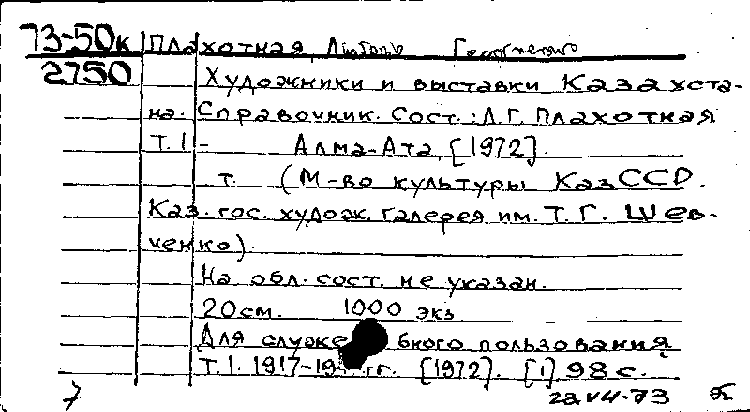 73-50к Плахотная,
2750 Художники и выставки Казахста-
на. Справочник. Сост.: Л.Г. Плахотная
Т. 1 - Алма-Ата, [1972].
т. (М-во культуры КазССР.
Каз. гос. худож. галерея им. Т. Г. Шев-
ченко).
На обл. сост. не указан.
20 см. 1000 экз.
Для служебного пользования
Т. 1. 1917-19 гг. [1972]. [1], 98 с.
7